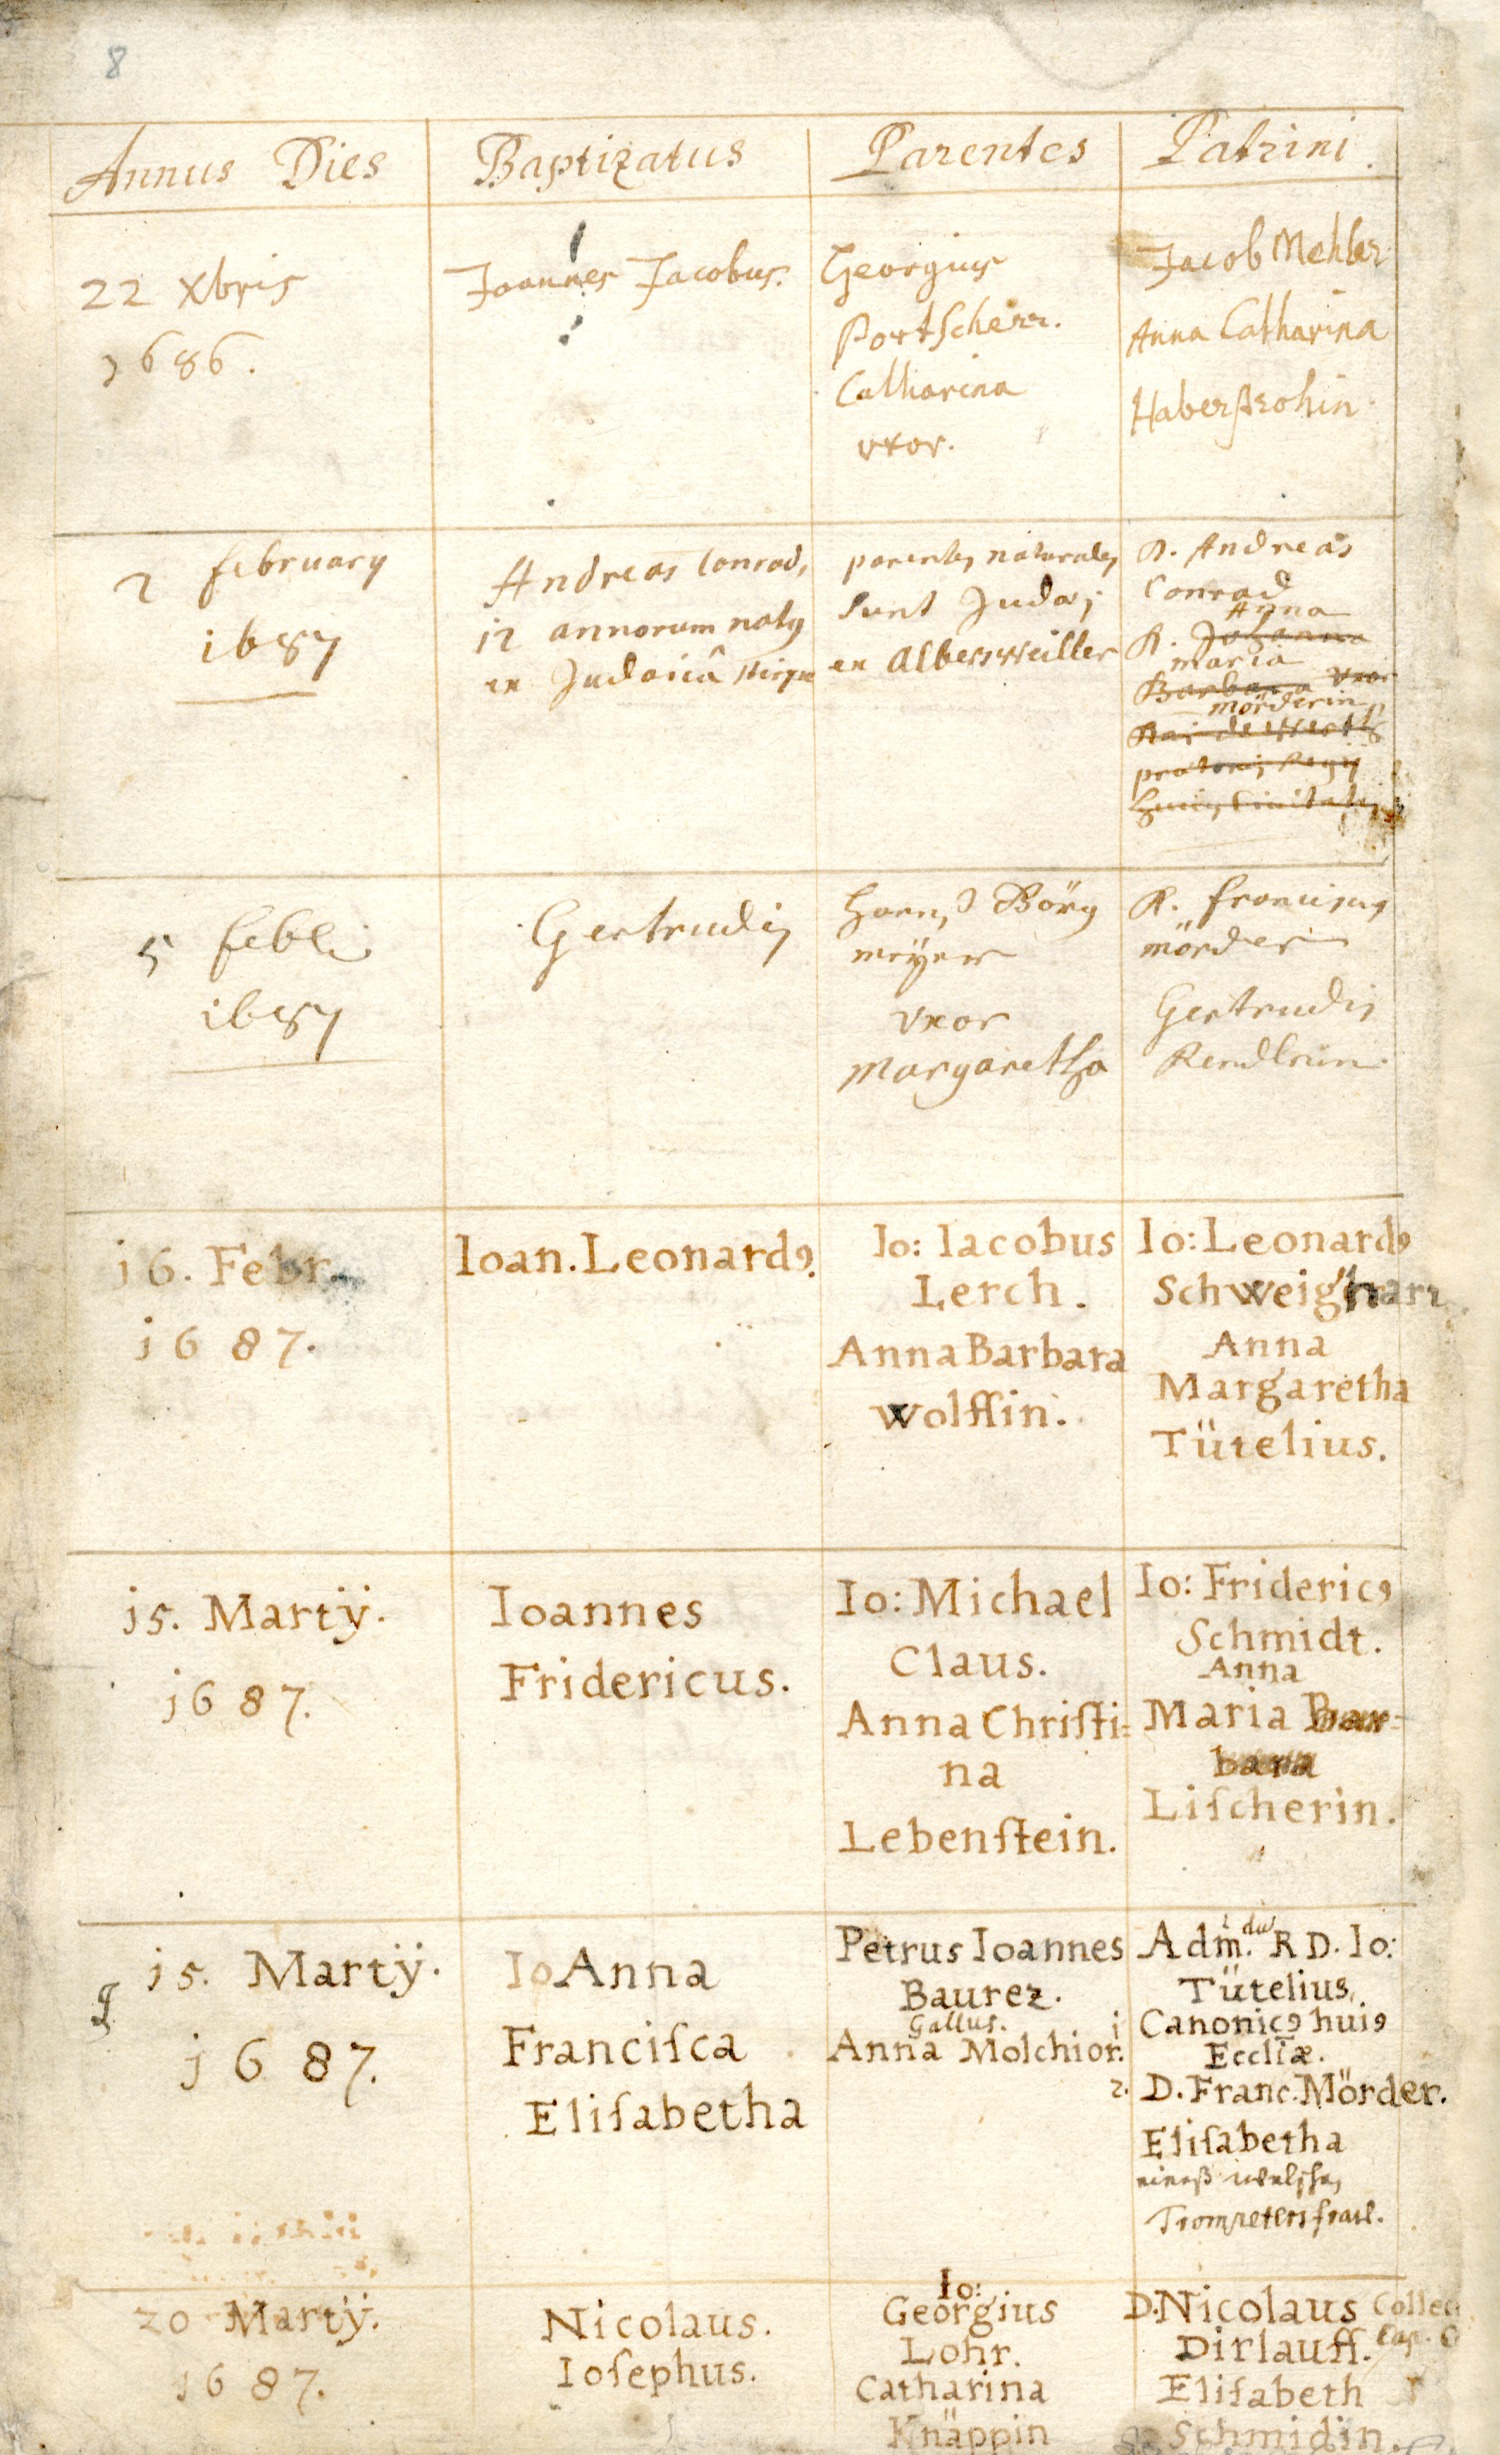 8
Annus Dies
Baptizatus
Parentes
Patrini.
22 Xbris
1686.
Joannes Jacobus.
Georgius
Portscherr.
Catharina
vxor.
Jacob Mehler
Anna Catharina
Haberstrohin.
2 february
1687
Andreas Conrad,
12 annorum natus
ex Judaicâ stirpe
parentes naturales
sunt Judaei
ex Albersweiller
R. Andreas
Conrad
Anna
R. Johanna
maria
Barbara vxor
mörderin
praetoris Regii
huius Civitatis
5 febr
1687
Gertrudis
Hans Görg
meÿer
vxor
Margaretha
R. franciscus
mörder
Gertrudis
16. Febr.
1687.
Ioan. Leonardꝰ.
Io: Iacobus
Lerch.
Anna Barbara
Wolffin.
Io: Leonardꝰ
Schweighart
Anna
Margaretha
Tütelius.
15. Martÿ.
1687.
Ioannes
Fridericus.
Io: Michael
Claus.
Anna Chriſti=
na
Lebenſtein.
Io: Fridericꝰ
Schmidt.
Anna
Maria Bar=
bara
Liſcherin.
15. Martÿ.
1687.
IoAnna
Franciſca
Eliſabetha
Petrus Ioannes
Baurez.
Gallus.
Anna Molchior.
Adm. R D. Io:
Tütelius
1 Canonicꝰ huiꝰ
Eccliæ.
2. D. Franc. Mörder.
Eliſabetha
eineß welschen
Trompeters frau.
20 Martÿ.
1687.
Nicolaus.
Ioſephus.
Io:
Georgius
Lohr.
Catharina
Knäppin
D. Nicolaus
Dirlauff.
Eliſabeth
Schmidin.